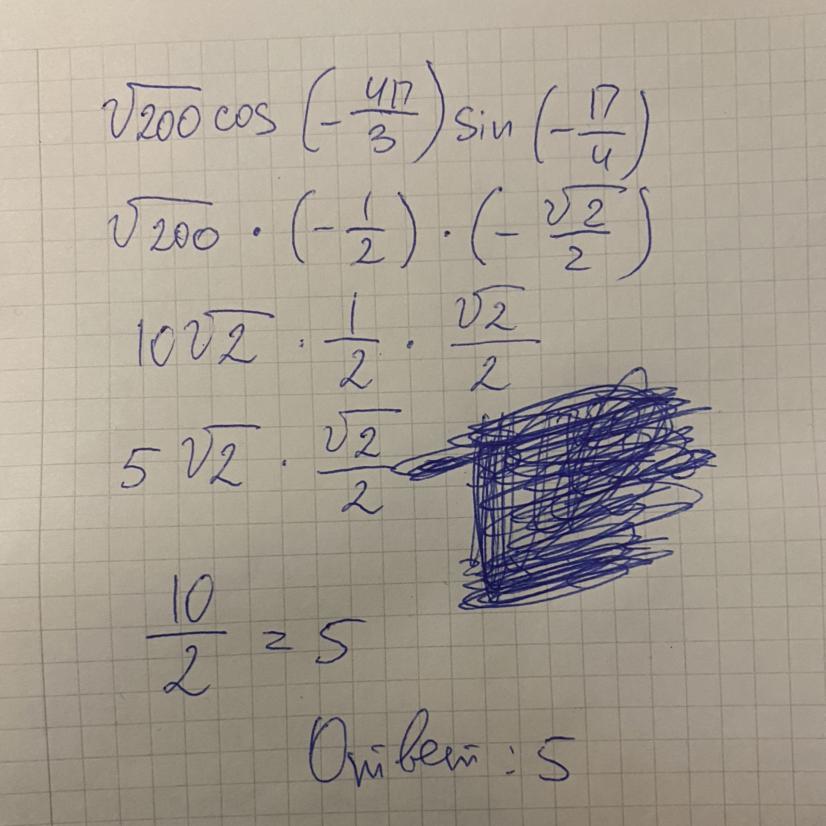 √200 cos (-4π/3) sin (-π/4)
√200 · (-1/2) · (-√2/2)
10√2 · 1/2 · √2/2
5√2 · √2/2
10/2 = 5
Ответ: 5